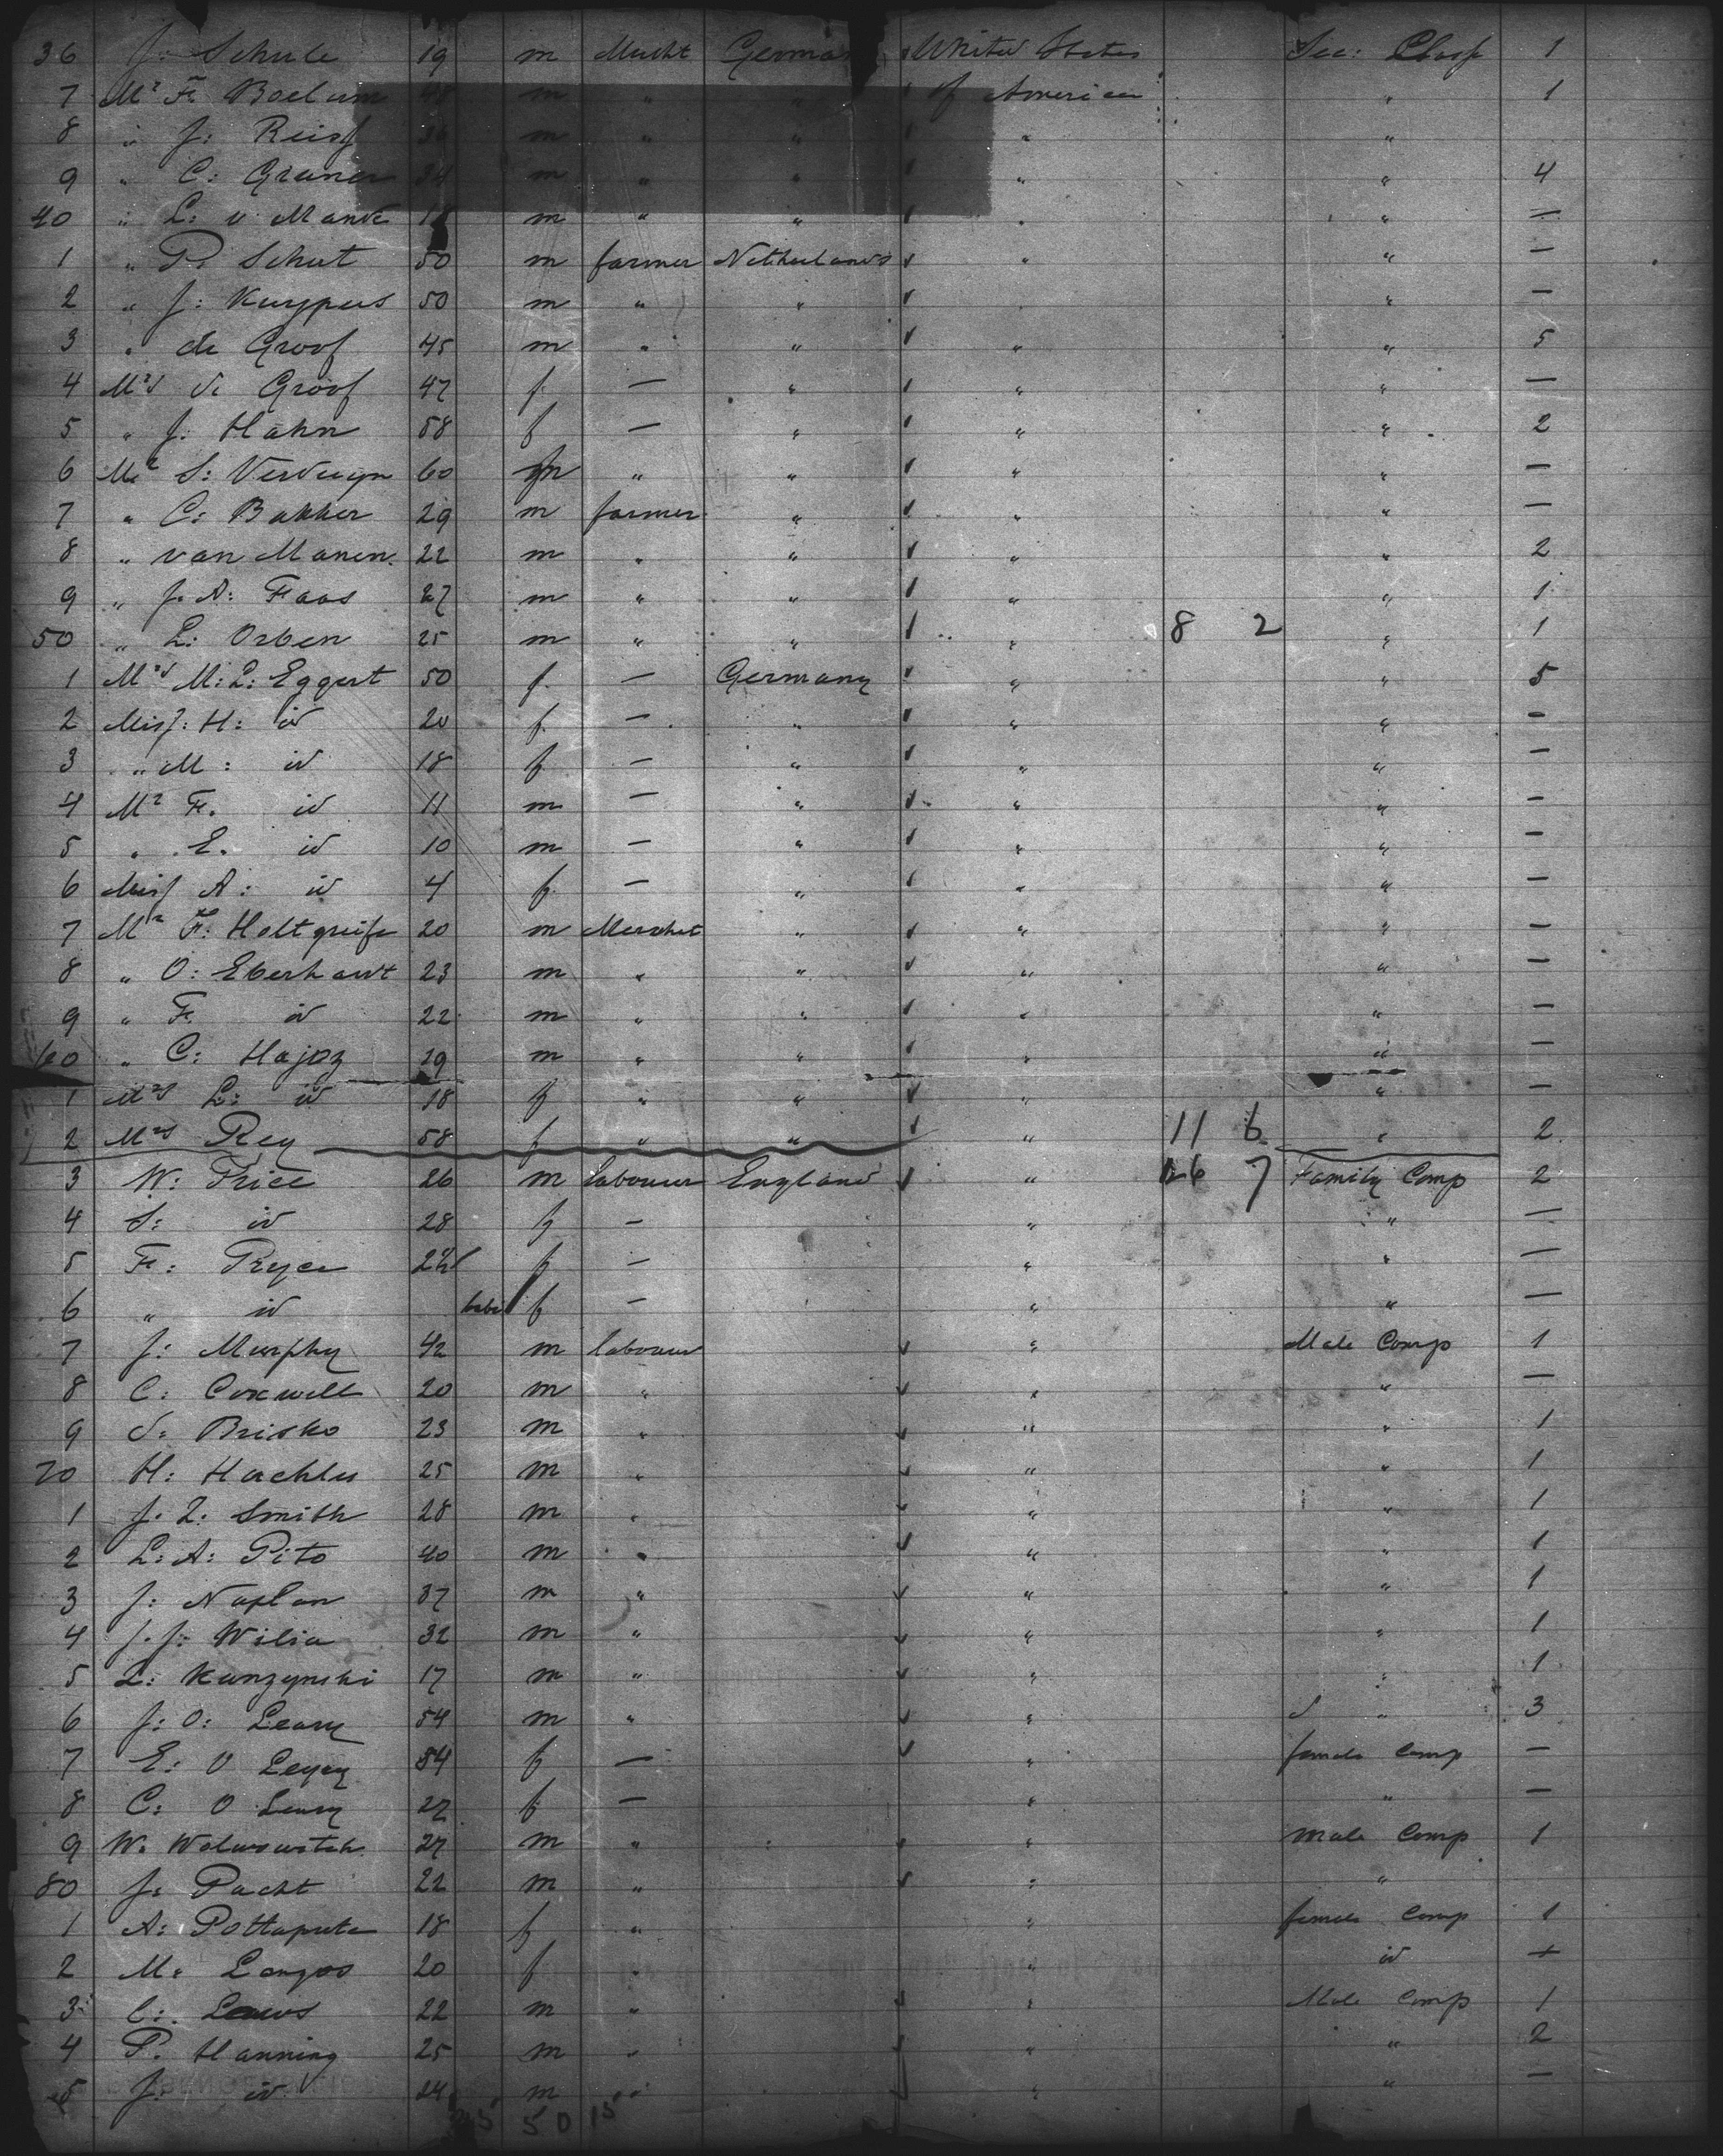 36 J: Schule 19 m Mcht German United States Sec: Class 1
7 Mr F. Boelum 48 m " " of America " 1
8 " J: Reiss m " " " "
9 " C: Gruner 24 m " " " " 4
40 " L: v Mank m " " " " —
1 " P. Schut 50 m farmer Netherlands " " —
2 " J: Kuypers 50 m " " " —
3 " de Groof 45 m " " " " 5
4 Mrs de Groof 47 f — " " " —
5 " J: Hahn 58 f — " " " 2
6 Mr S: Verduyn 60 m " " " " —
7 " C: Bakker 29 m farmer " " " —
8 " van Manen. 22 m " " " " 2
9 " J. A: Faas 27 m " " " " 1
50 " L: Orben 25 m " " " 8 2 " 1
1 Mrs M: L: Eggert 50 f — Germany " " 5
2 Miss: H: id 20 f — " " " —
3 " M: id 18 f — " " " —
4 Mr F. id 11 m — " " " —
5 " E. id 10 m — " " " —
6 Miss A: id 4 f — " " " —
7 Mr F: Holtgreife 20 m Merchet " " " —
8 " O: Eberhardt 23 m " " " —
9 " F. id 22 m " " " " —
60 " C: Hajoz 29 m " " " " —
1 Mrs L: id 18 f " " " " —
2 Mrs Rey 58 f " " " 11 6 " 2
3 W: Price 26 m labourer England " 26 7 Family Comp 2
4 S: id 28 f — " " —
5 F: Pryce 22 f — " " —
6 " id babe f — " " —
7 J: Murphy 42 m labourer " Male Comp 1
8 C: Coxwell 20 m " " " —
9 S: Brisko 23 m " " " 1
70 H: Hachler 25 m " " " 1
1 J. L. Smith 28 m " " " 1
2 L: A: Pito 40 m " " " 1
3 J: Naplan 37 m " " " 1
4 J. J: Wilia 32 m " " " 1
5 L: Kunzynski 17 m " " " 1
6 J: O: Leary 54 m " " " 3
7 E: O Leary 54 f — " female Comp —
8 C: O Leary 27 f — " " —
9 W. Wolwowitch 27 m " " Male Comp 1
80 J: Pacht 22 m " " "
1 A: Pottaputa 18 f " " female Comp 1
2 M: Langos 20 f " " id +
3 C: Laws 22 m " " Male Comp 1
4 P. Hanning 25 m " " " 2
5 J. id 24 m " " " —
50 15